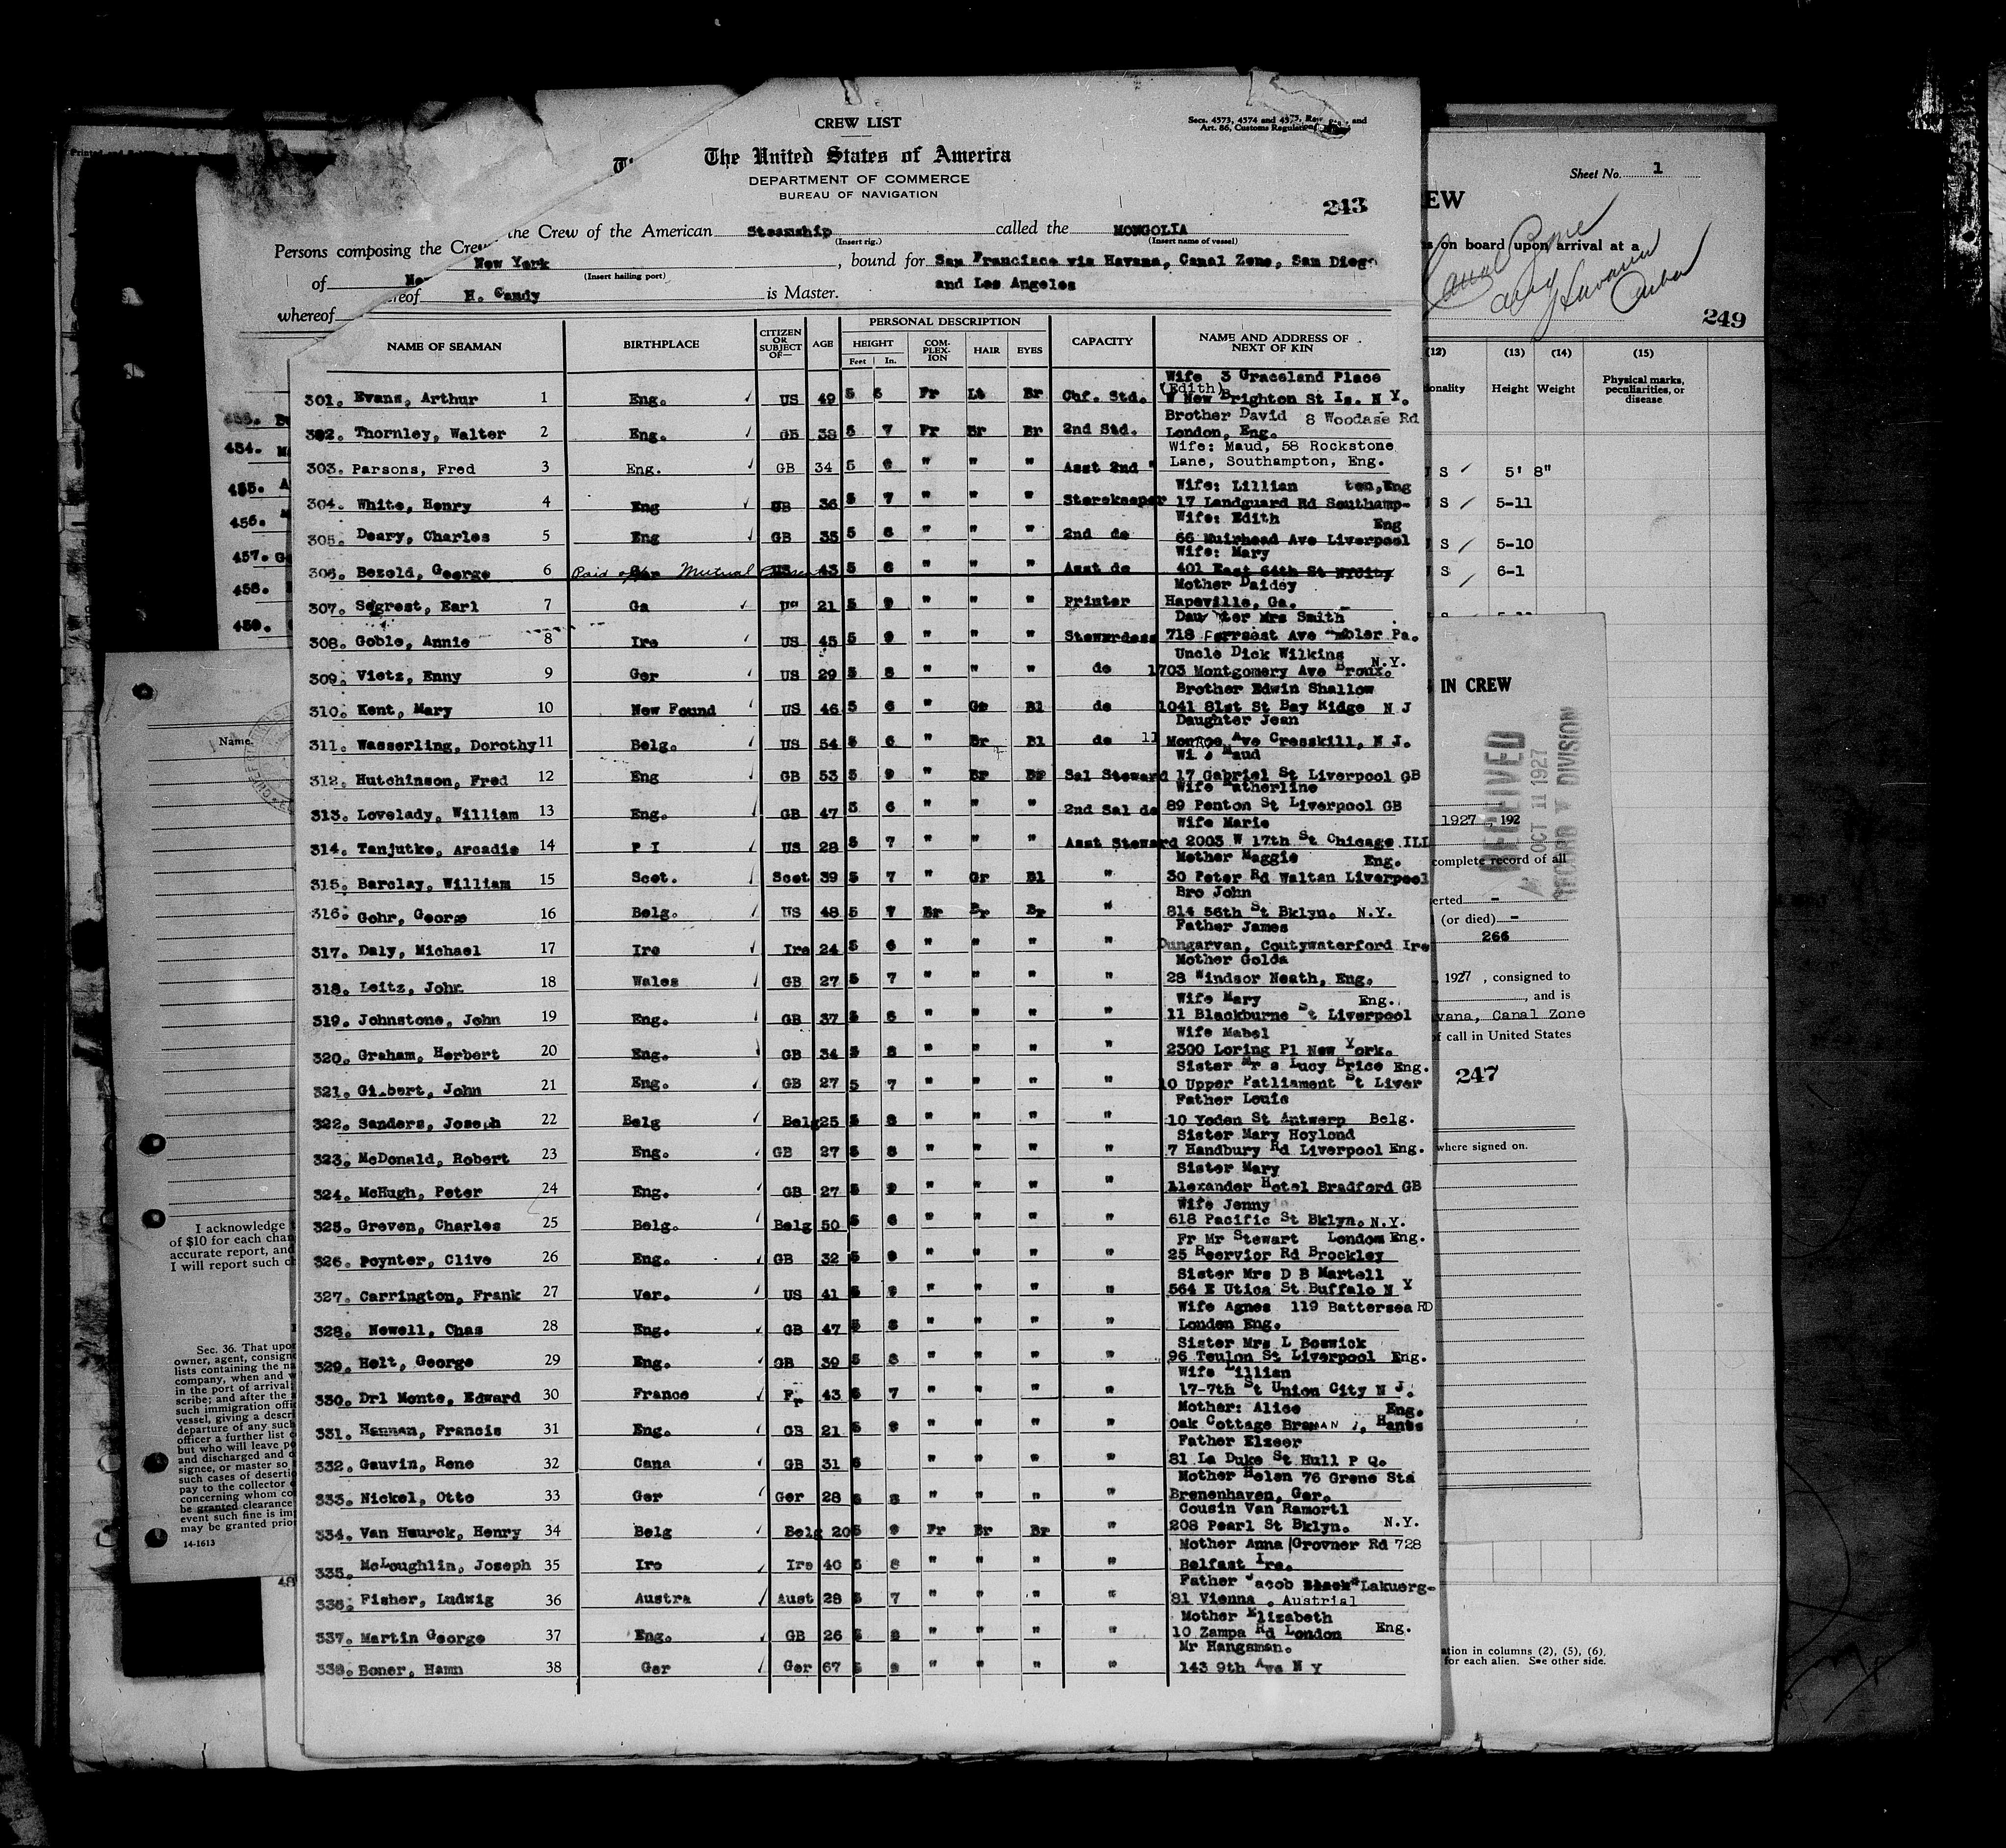 CREW LIST
Secs. 4573, 4574 and 4575, Rev. and
Art. 86, Customs Regulations
The United States of America
DEPARTMENT OF COMMERCE
BUREAU OF NAVIGATION
243
the Crew of the American Steamship called the MONGOLIA
(Insert rig.) (Insert name of vessel)
Persons composing the Crew
New York , bound for San Francisco via Havana, Canal Zone, San Diego
(Insert hailing port)
of
and Los Angeles
H. Gandy is Master.
whereof
NAME OF SEAMAN BIRTHPLACE CITIZEN OR SUBJECT OF— AGE PERSONAL DESCRIPTION CAPACITY NAME AND ADDRESS OF NEXT OF KIN
HEIGHT COM-PLEX-ION HAIR EYES
Feet In.
Wife 3 Graceland Place
(Edith)
301. Evans, Arthur 1 Eng. US 49 5 6 Fr Lt Br Chf. Std. W New Brighton St Is. N Y.
Brother David 8 Woodase Rd
302. Thornley, Walter 2 Eng. GB 38 5 7 Fr Br Br 2nd Std. London, Eng.
Wife: Maud, 58 Rockstone
303. Parsons, Fred 3 Eng. GB 34 5 6 " " " Asst 2nd " Lane, Southampton, Eng.
Wife: Lillian ton,Eng
304. White, Henry 4 Eng GB 36 5 7 " " " Storekeeper 17 Landguard Rd Southamp-
Wife: Edith Eng
305. Deary, Charles 5 Eng GB 35 5 6 " " " 2nd do 66 Muirhead Ave Liverpool
Wife: Mary
306. Bezold, George 6 Paid off Mutual Consent Ger US 43 5 8 " " " Asst do 401 East 64th St NYCity
Mother Daidey
307. Segrest, Earl 7 Ga US 21 5 9 " " " Printer Hapeville, Ga.
Daughter Mrs Smith
308. Goble, Annie 8 Ire US 45 5 9 " " " Stewardess 718 Forrsest Ave Ambler Pa.
Uncle Dick Wilkins
309. Vietz, Enny 9 Ger US 29 5 8 " " " do 1703 Montgomery Ave Bronx. N.Y.
Brother Edwin Shallow
310. Kent, Mary 10 New Found US 46 5 6 " Gr Bl do 1041 81st St Bay Ridge N J
Daughter Jean
311. Wasserling, Dorothy 11 Belg. US 54 5 6 " Br Bl do 11 Monroe Ave Cresskill, N J.
Wife Maud
312. Hutchinson, Fred 12 Eng GB 53 5 9 " Br Br Sal Steward 17 Gabriel St Liverpool GB
Wife Katherline
313. Lovelady, William 13 Eng. GB 47 5 6 " " " 2nd Sal do 89 Penton St Liverpool GB
Wife Marie
314. Tanjutke, Arcadie 14 P I US 28 5 7 " " " Asst Steward 2003 W 17th St Chicago ILL
Mother Maggie Eng.
315. Barclay, William 15 Scot. Scot 39 5 7 " Gr Bl " 30 Peter Rd Waltan Liverpool
Bro John
316. Gohr, George 16 Belg. US 48 5 7 Br Br Br " 814 56th St Bklyn. N.Y.
Father James
317. Daly, Michael 17 Ire Ire 24 5 6 " " " " Dungarvan, Coutywaterford Ire
Mother Golda
318. Leitz, John 18 Wales GB 27 5 7 " " " " 28 Windsor Neath, Eng.
Wife Mary Eng.
319. Johnstone, John 19 Eng. GB 37 5 8 " " " " 11 Blackburne St Liverpool
Wife Mabel
320. Graham, Herbert 20 Eng. GB 34 5 8 " " " " 2300 Loring Pl New York.
Sister Mrs Lucy Brice Eng.
321. Gilbert, John 21 Eng. GB 27 5 7 " " " " 10 Upper Patliament St Liver
Father Louis
322. Sanders, Joseph 22 Belg Belg 25 5 8 " " " " 10 Yeden St Antwerp Belg.
Sister Mary Hoylond
323. McDonald, Robert 23 Eng. GB 27 5 8 " " " " 7 Handbury Rd Liverpool Eng.
Sister Mary
324. McHugh, Peter 24 Eng. GB 27 5 9 " " " " Alexander Hotel Bradford GB
Wife Jenny
325. Greven, Charles 25 Belg. Belg 50 5 6 " " " " 618 Pacific St Bklyn. N.Y.
Fr Mr Stewart London Eng.
326. Poynter, Clive 26 Eng. GB 32 5 9 " " " " 25 Reervior Rd Brockley
Sister Mrs D B Martell
327. Carrington, Frank 27 Ver. US 41 5 8 " " " " 564 E Utica St Buffalo N Y
Wife Agnes 119 Battersea RD
328. Newell, Chas 28 Eng. GB 47 5 8 " " " " London Eng.
Sister Mrs L Boswick
329. Holt, George 29 Eng. GB 39 5 8 " " " " 96 Teulon St Liverpool Eng.
Wife Lillian
330. Drl Monte, Edward 30 France Fr 43 5 7 " " " " 17-7th St Union City N J.
Mother: Alice Eng.
331. Hannan, Francis 31 Eng. GB 21 5 8 " " " " Oak Cottage Hants
Father Elzeer
332. Gauvin, Rene 32 Cana GB 31 5 " " " " 81 La Duke St Hull P Q.
Mother Helen 76 Grene Sta
333. Nickel, Otto 33 Ger Ger 28 5 8 " " " " Brenenhaven, Ger.
Cousin Van Ramortl
334. Van Heurck, Henry 34 Belg Belg 20 5 9 Fr Br Br " 208 Pearl St Bklyn. N.Y.
Mother Anna Grovner Rd 728
335. McLoughlin, Joseph 35 Ire Ire 40 5 8 " " " " Belfast Ire.
Father Jacob Lakuerg-
336. Fisher, Ludwig 36 Austra Aust 28 5 7 " " " " 81 Vienna , Austrial
Mother Elizabeth
337. Martin George 37 Eng. GB 26 5 8 " " " " 10 Zampa Rd London Eng.
Mr Hangsman.
338. Boner, Hamn 38 Ger Ger 67 5 8 " " " " 143 9th Ave N Y
Sheet No. 1
EW
s on board upon arrival at a
Canal Zone
Havana
Cuba
249
(12) (13) (14) (15)
onality Height Weight Physical marks, peculiarities, or disease
U S 5' 8"
U S 5-11
U S 5-10
U S 6-1
IN CREW
RECEIVED
OCT 11 1927
RECORD DIVISION
1927 , 192
complete record of all
erted -
(or died) -
266
, 1927 , consigned to
, and is
vana, Canal Zone
of call in United States
247
where signed on.
ation in columns (2), (5), (6),
for each alien. See other side.
454.
455.
456.
457.
458.
459.
Name
I acknowledge
of $10 for each chan
accurate report, and
I will report such ch
Sec. 36. That upon
owner, agent, consigne
lists containing the na
company, when and w
in the port of arrival;
scribe; and after the
such immigration offic
vessel, giving a descri
departure of any such
officer a further list
but who will leave po
and discharged and d
signee, or master so
such cases of deserti
pay to the collector
concerning whom co
be granted clearance
event such fine is im
may be granted prior
14-1613